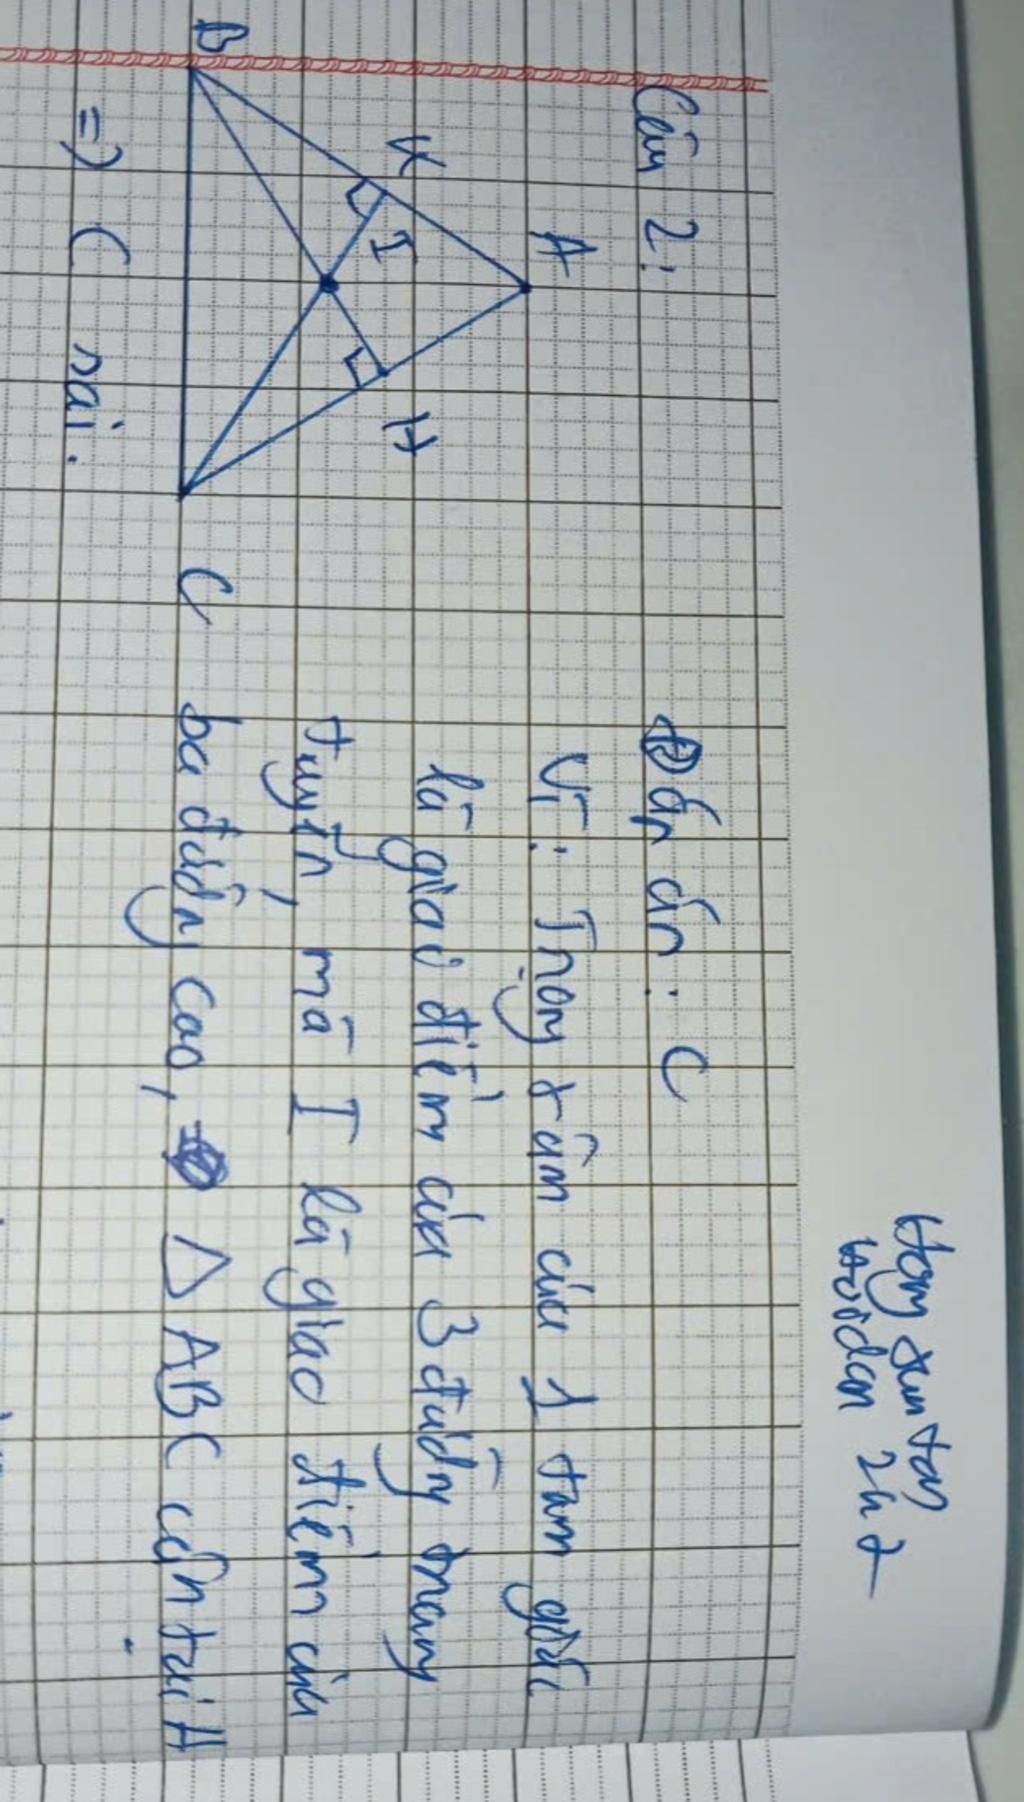 Câu 2:
A
K
H
I
B
C
=) C sai.
Đáp án: C
Vì: Trọng tâm của 1 tam giác
là giao điểm của 3 đường trung
tuyến, mà I là giao điểm của
ba đường cao, △ABC cân tại A